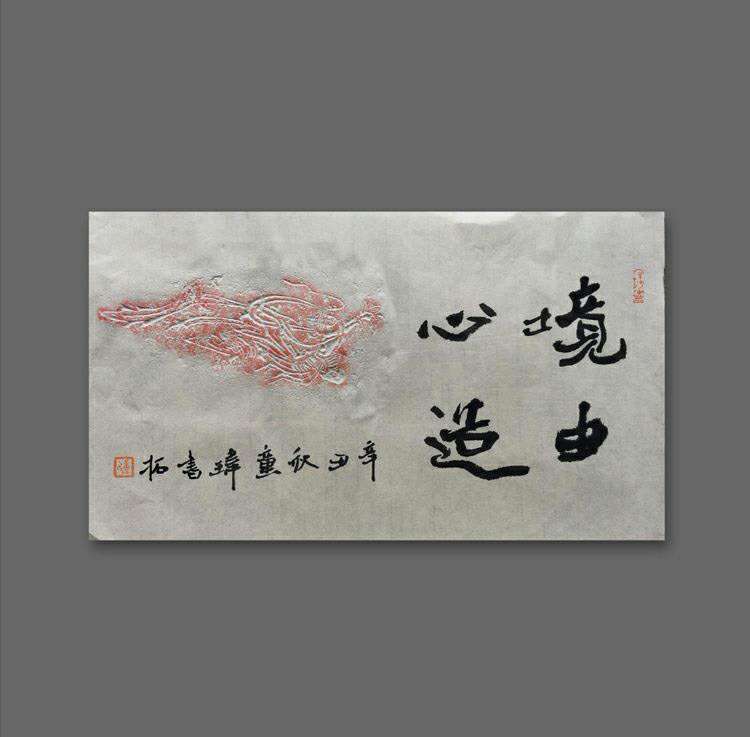 境由
心造
辛丑秋童瑋書拓